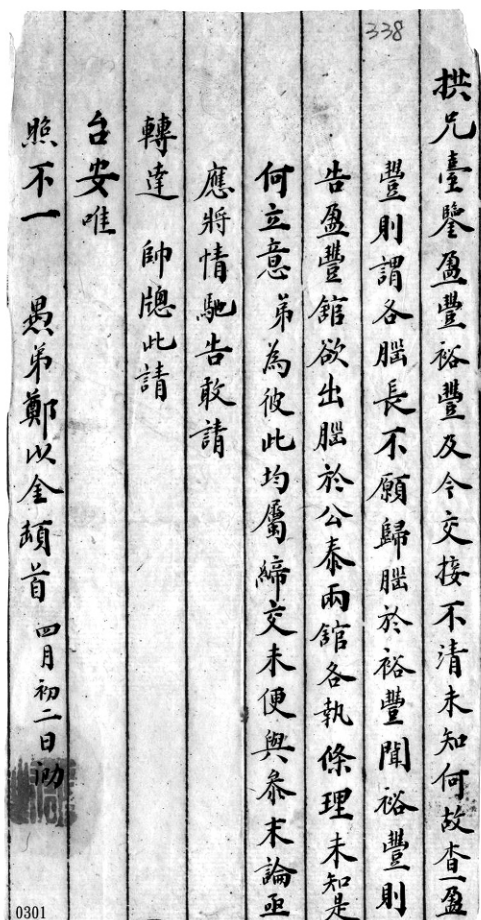 338
拱兄臺鑒盈豐裕豐及今交接不清未知何故查一盈
豐則謂各腦長不願歸腦於裕豐聞裕豐則
告盈豐館欲出腦於公泰兩館各執條理未知是
何立意弟為彼此均屬締交未便與參末論亟
應將情馳告敢請
轉達 帥聽此請
台安唯
照不一 愚弟鄭以金頓首 四月初二日泐
0301